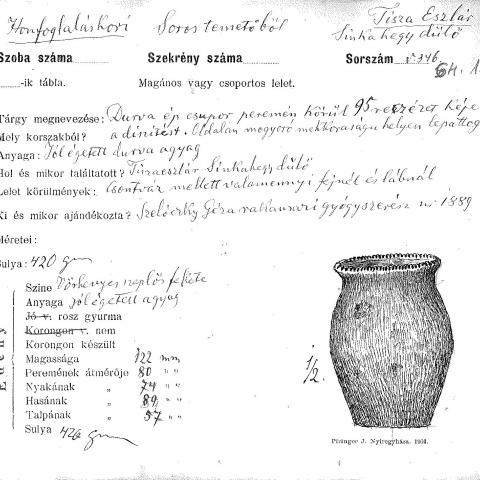 Honfoglaláskori Soros temetőből Tisza Eszlár
Sinkahegy dűlő
Szoba száma Szekrény száma Sorszám 346
64.
-ik tábla. Magános vagy csoportos lelet.
Tárgy megnevezése: Durva ép csupor peremén körül 95 részét képe
Mely korszakból? a díszítést. Oldalán mogyoró mekkoraságu helyen lepattog
Anyaga: Jól égetett durva agyag
Hol és mikor találtatott? Tiszaeszlár Sinkahegy dűlő
Lelet körülmények: Csontváz mellett valamennyi fejnél és lábnál
Ki és mikor ajándékozta? Szelóczky Géza rakamazi gyógyszerész úr 1889
Méretei:
Sulya: 420 gm
Edény
Szine Vöröhenyes szeplős fekete
Anyaga jól égetett agyag
Jó v. rosz gyurma
Korongon v. nem
Korongon készült
Magassága 122 mm
Peremének átmérője 80 " "
Nyakának " 74 " "
Hasának " 89 " "
Talpának " 57 " "
Sulya 420 gm
1/2.
Piringer J. Nyiregyháza.